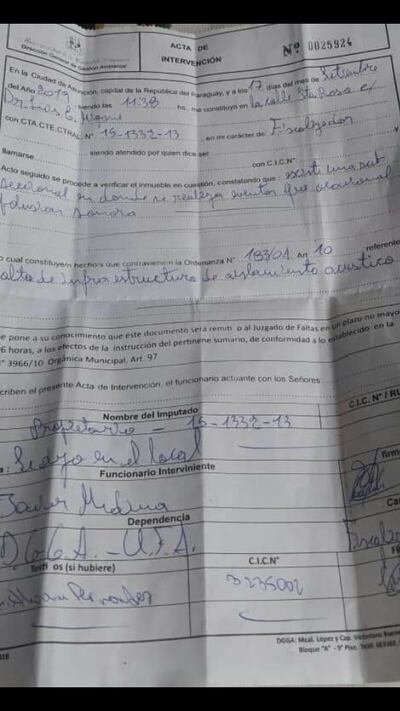 Dirección General de Gestión Ambiental
ACTA DE
INTERVENCIÓN
Nº 0025924
En la Ciudad de Asunción, capital de la República del Paraguay, y a los 17 días del mes de Setiembre
del Año 2019 siendo las 11:38 hs. me constituyo en la calle Sta Rosa e/
Dr.
con CTA.CTE.CTRAL.N° 15-1332-13 en mi carácter de: Fiscalizador
llamarse siendo atendido por quien dice ser con C.I.C.N°
Acto seguido se procede a verificar el inmueble en cuestión, constatando que: existe una sub
seccional en donde se realizan eventos que ocasionan
polución sonora
o cual constituye/n hecho/s que contraviene/n la Ordenanza N° Art 10 referente
alta de infraestructura de aislamiento acustico
se pone a su conocimiento que este documento será remiti o al Juzgado de Faltas en un plazo no mayo
6 horas, a los efectos de la instrucción del pertinene sumario, de conformidad a lo establecido en la
° 3966/10 Orgánica Municipal, Art. 97
criben el presente Acta de Intervención, el funcionario actuante con los Señores:
Nombre del Imputado
C.I.C. N° / RU
Propietario - 15-1332-13
a: en el local
Funcionario Interviniente
firm
Javier Medina
Dependencia
Ca
D.G.G.A. - U.F.A.
Testi os (si hubiere)
C.I.C.N°
Fernandez
3235002
DGGA: Mcal. López y Cap.
Bloque "A" - 5° Piso.